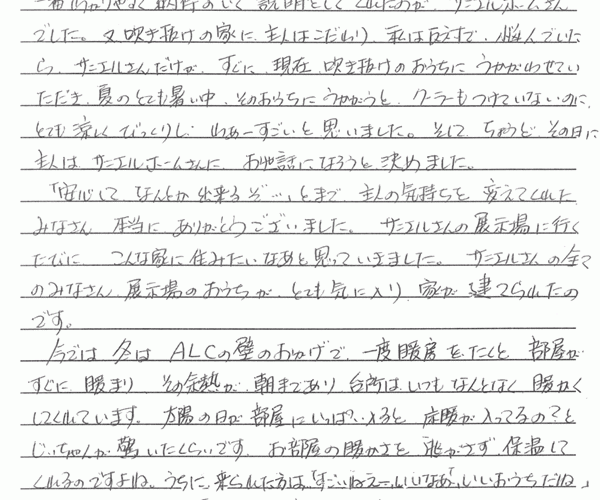 一番わかりやすく納得のいく説明をしてくれたのが、サンエルホームさん
でした。又吹き抜けの家に、主人はこだわり、私は反対で、悩んでいた
ら、サンエルさんだけが、すぐに、現在、吹き抜けのおうちに うかがわせてい
ただき、夏のとても暑い中、そのおうちにうかがうと、クーラーもつけていないのに、
とても涼しくびっくりし、わぁーすごいと思いました。そして、ちょうど、その日に
主人は、サンエルホームさんに、お世話になろうと、決めました。
「安心して なんとか出来るぞ…」とまで、主人の気持ちを、変えてくれた
みなさん 本当に ありがとうございました。 サンエルさんの展示場に行く
たびに、こんな家に住みたいなあと思っていきました。 サンエルさんの全て
のみなさん、展示場のおうちが、とても気に入り、家が建てられたの
です。
今では 冬は ALCの壁のおかげで、一度暖房をたくと、部屋が
すぐに 暖まり その余熱が、朝まであり、台所は、いつもなんとなく暖かく
してくれています。太陽の日が部屋にいっぱい入ると 床暖が入ってるの?と
じいちゃんが 驚いたくらいです。お部屋の暖かさを 逃がさず 保温して
くれるのですよね。うちに、来られた方は、「すごいねえー、いいなあ」「いいおうちだね」